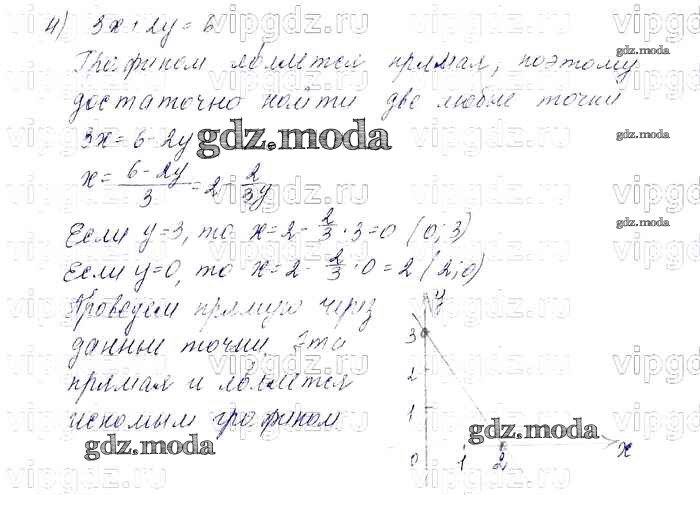 4) 3x+2y=6
Графиком является прямая, поэтому
достаточно найти две любые точки
3x=6-2y
x=\frac{6-2y}{3}=2-\frac{2}{3}y
Если y=3, то x=2-\frac{2}{3}·3=0 (0;3)
Если y=0, то x=2-\frac{2}{3}·0=2 (2;0)
Проведем прямую через
данные точки. Эта
прямая и является
искомым графиком
y
3
2
1
0 1 2 x
gdz.moda
gdz.moda
gdz.moda
gdz.moda
gdz.moda
gdz.moda
vipgdz.ru